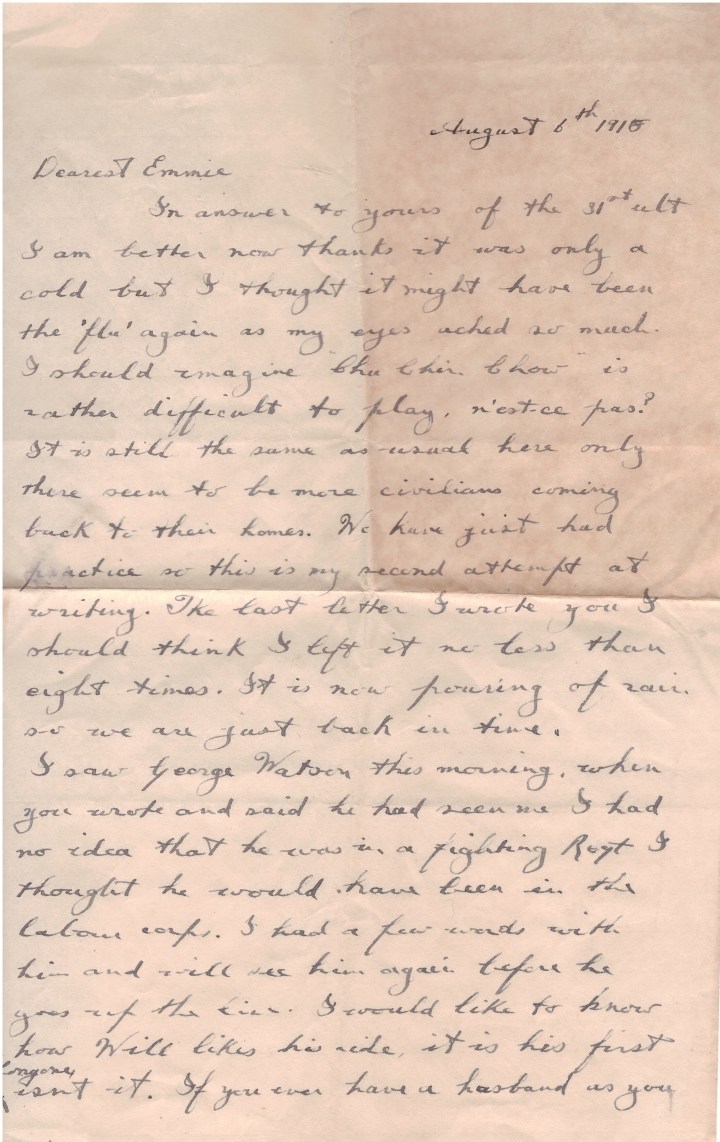 August 6th 1918
Dearest Emmie
In answer to yours of the 31st ult
I am better now thanks it was only a
cold but I thought it might have been
the 'flu' again as my eyes ached so much.
I should imagine "Chu Chin Chow" is
rather difficult to play, n'est-ce pas?
It is still the same as usual here only
there seem to be more civilians coming
back to their homes. We have just had
practice so this is my second attempt at
writing. The last letter I wrote you I
should think I left it no less than
eight times. It is now pouring of rain
so we are just back in time.
I saw George Watson this morning, when
you wrote and said he had seen me I had
no idea that he was in a fighting Regt I
thought he would have been in the
labour corps. I had a few words with
him and will see him again before he
goes up the line. I would like to know
how Will likes his ride, it is his first
long one,
isnt it. If you ever have a husband as you